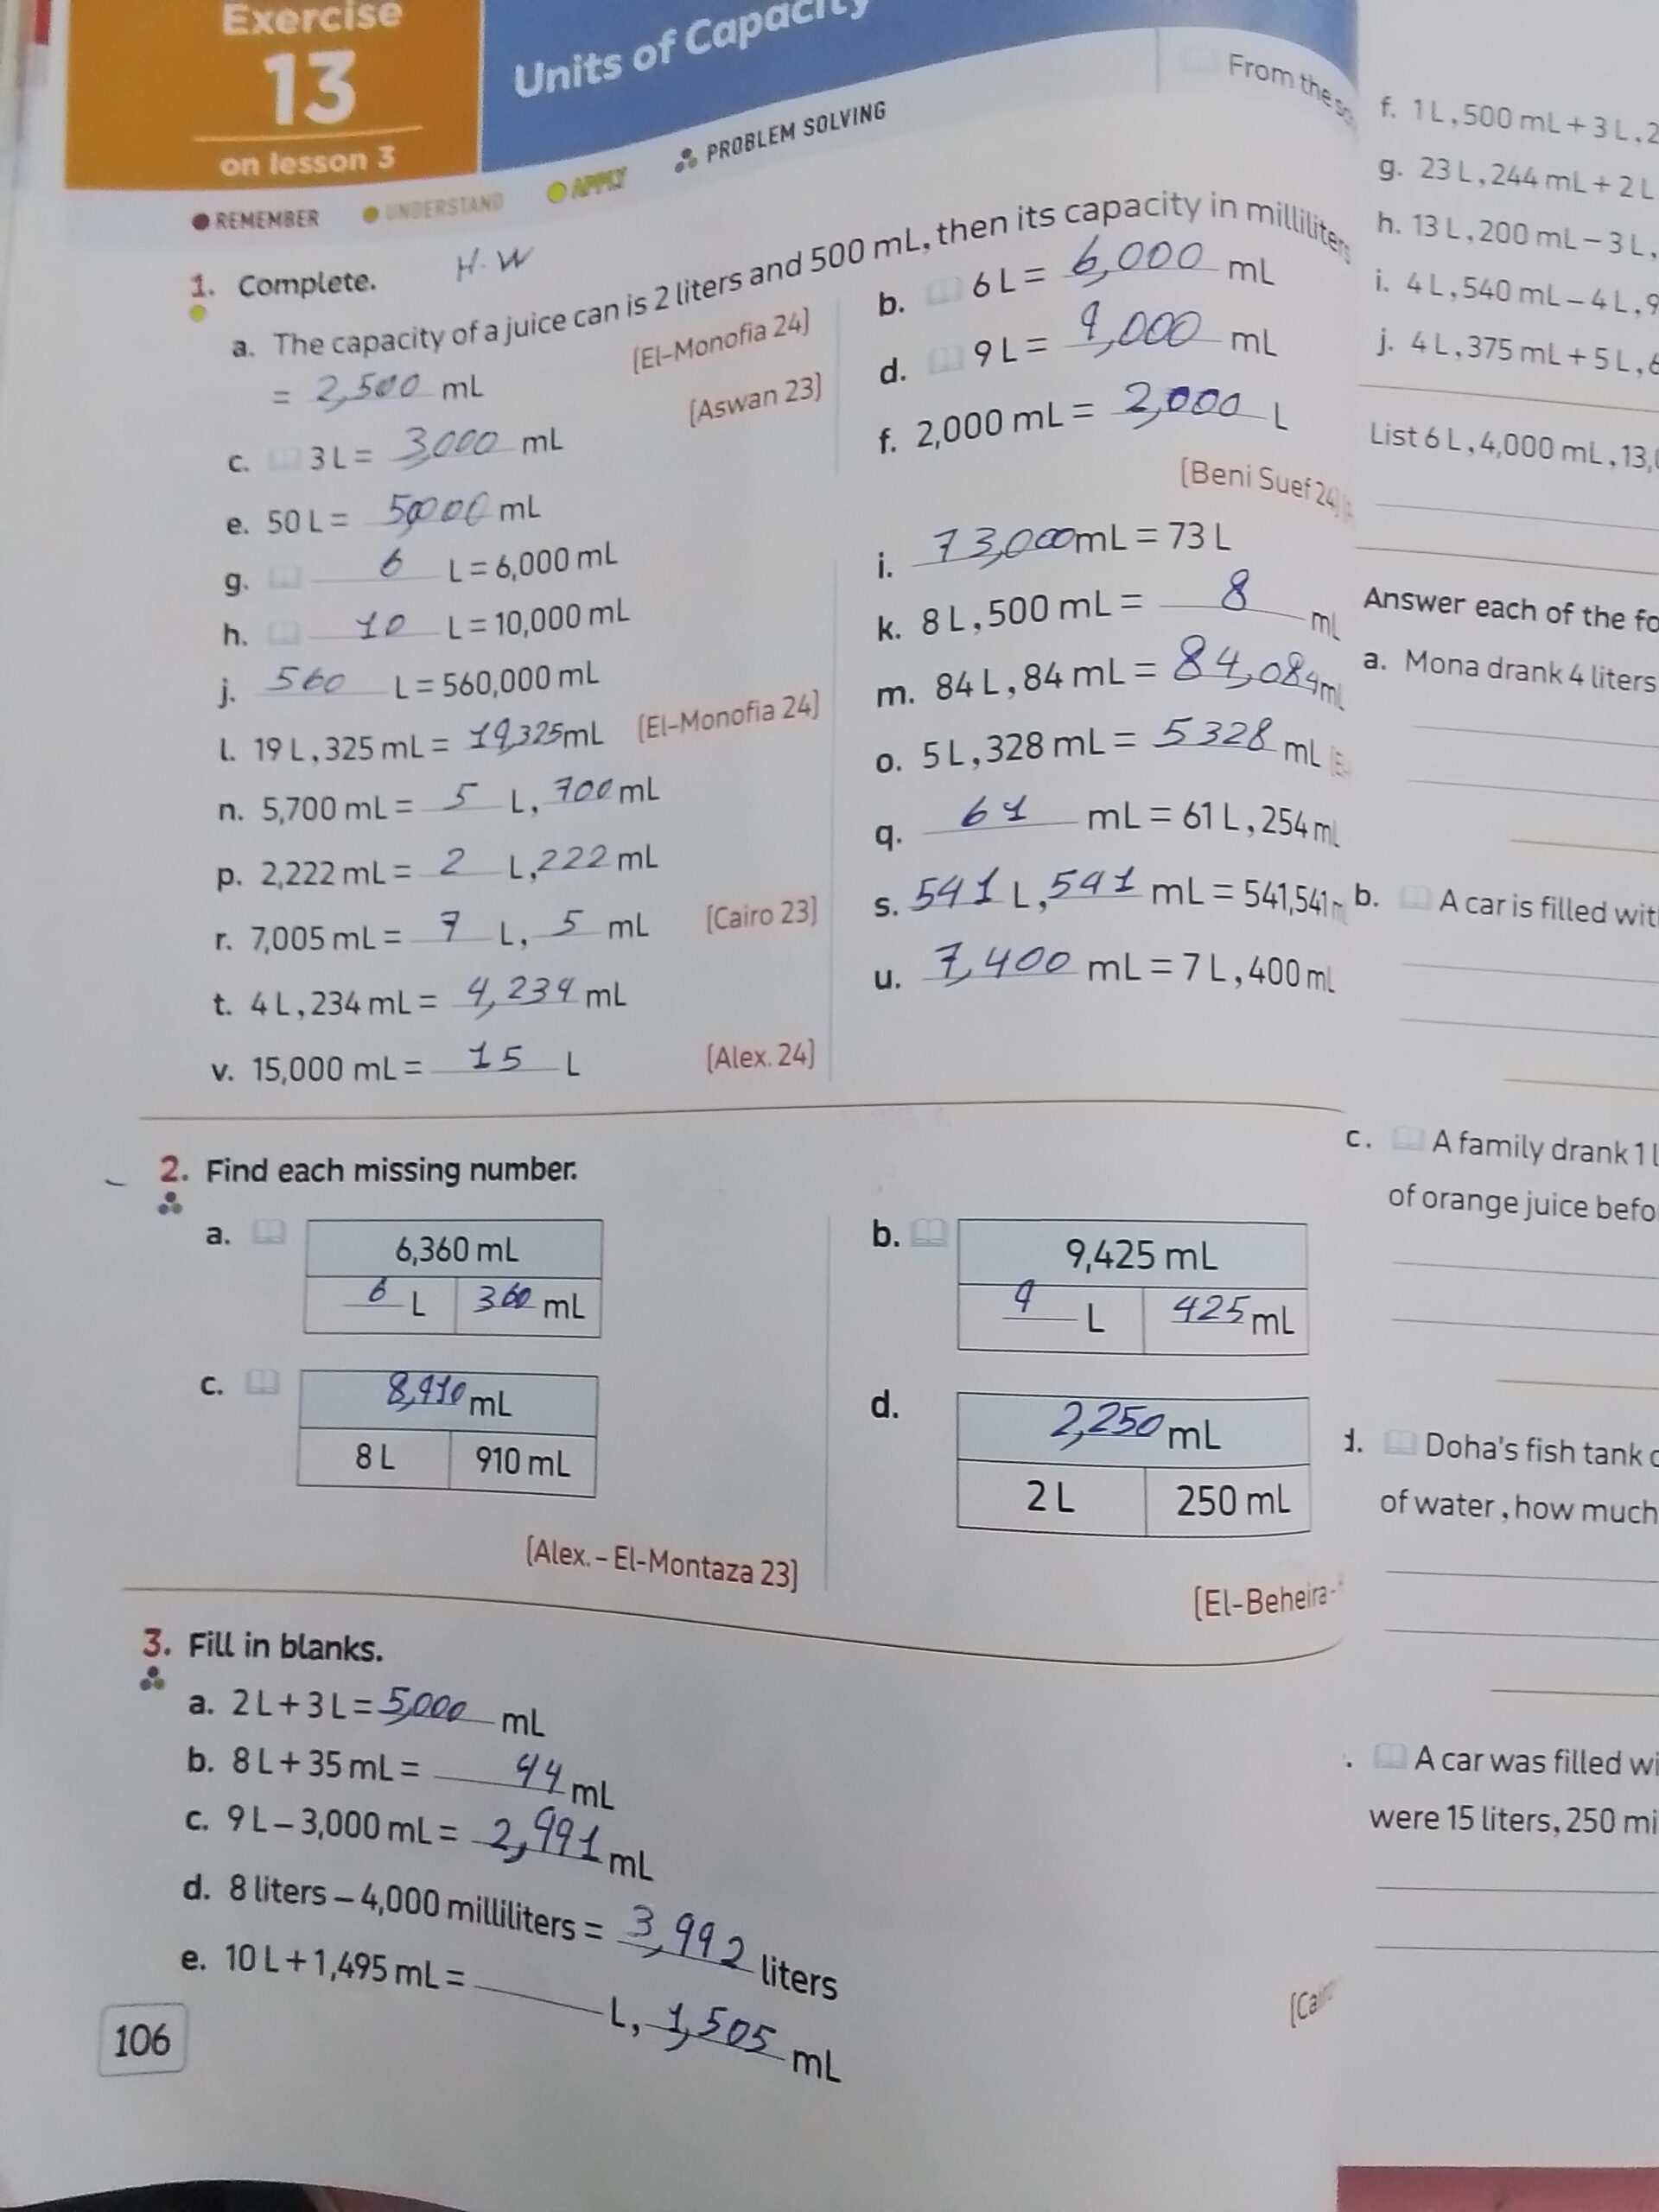 Exercise
13
on lesson 3
Units of Capacity
From the
REMEMBER UNDERSTAND APPLY PROBLEM SOLVING
1. Complete. H.W
a. The capacity of a juice can is 2 liters and 500 mL, then its capacity in milliliters
= 2,500 mL [El-Monofia 24]
b. 6 L = 6,000 mL
c. 3 L = 3,000 mL [Aswan 23]
d. 9 L = 9,000 mL
e. 50 L = 50000 mL
f. 2,000 mL = 2,000 L
[Beni Suef 24]
g. 6 L = 6,000 mL
h. 10 L = 10,000 mL
i. 73,000 mL = 73 L
j. 560 L = 560,000 mL
k. 8 L, 500 mL = 8 mL
l. 19 L, 325 mL = 19,325 mL [El-Monofia 24]
m. 84 L, 84 mL = 84,084 mL
n. 5,700 mL = 5 L, 700 mL
o. 5 L, 328 mL = 5328 mL
p. 2,222 mL = 2 L, 222 mL
q. 61 mL = 61 L, 254 mL
r. 7,005 mL = 7 L, 5 mL [Cairo 23]
s. 541 L, 541 mL = 541,541
t. 4 L, 234 mL = 4,234 mL
u. 7,400 mL = 7 L, 400 mL
v. 15,000 mL = 15 L [Alex. 24]
2. Find each missing number.
a. 6,360 mL
6 L 360 mL
b. 9,425 mL
9 L 425 mL
c. 8,910 mL
8 L 910 mL
[Alex. – El-Montaza 23]
d. 2,250 mL
2 L 250 mL
[El-Beheira-
3. Fill in blanks.
a. 2 L + 3 L = 5,000 mL
b. 8 L + 35 mL = 44 mL
c. 9 L – 3,000 mL = 2,991 mL
d. 8 liters – 4,000 milliliters = 3,992 liters
e. 10 L + 1,495 mL = L, 1,505 mL
106
f. 1 L, 500 mL + 3 L, 2
g. 23 L, 244 mL + 2 L
h. 13 L, 200 mL – 3 L,
i. 4 L, 540 mL – 4 L, 9
j. 4 L, 375 mL + 5 L, 6
List 6 L, 4,000 mL, 13,
Answer each of the fo
a. Mona drank 4 liters
b. A car is filled wit
c. A family drank 1 l
of orange juice befo
d. Doha's fish tank c
of water, how much
A car was filled wi
were 15 liters, 250 mi